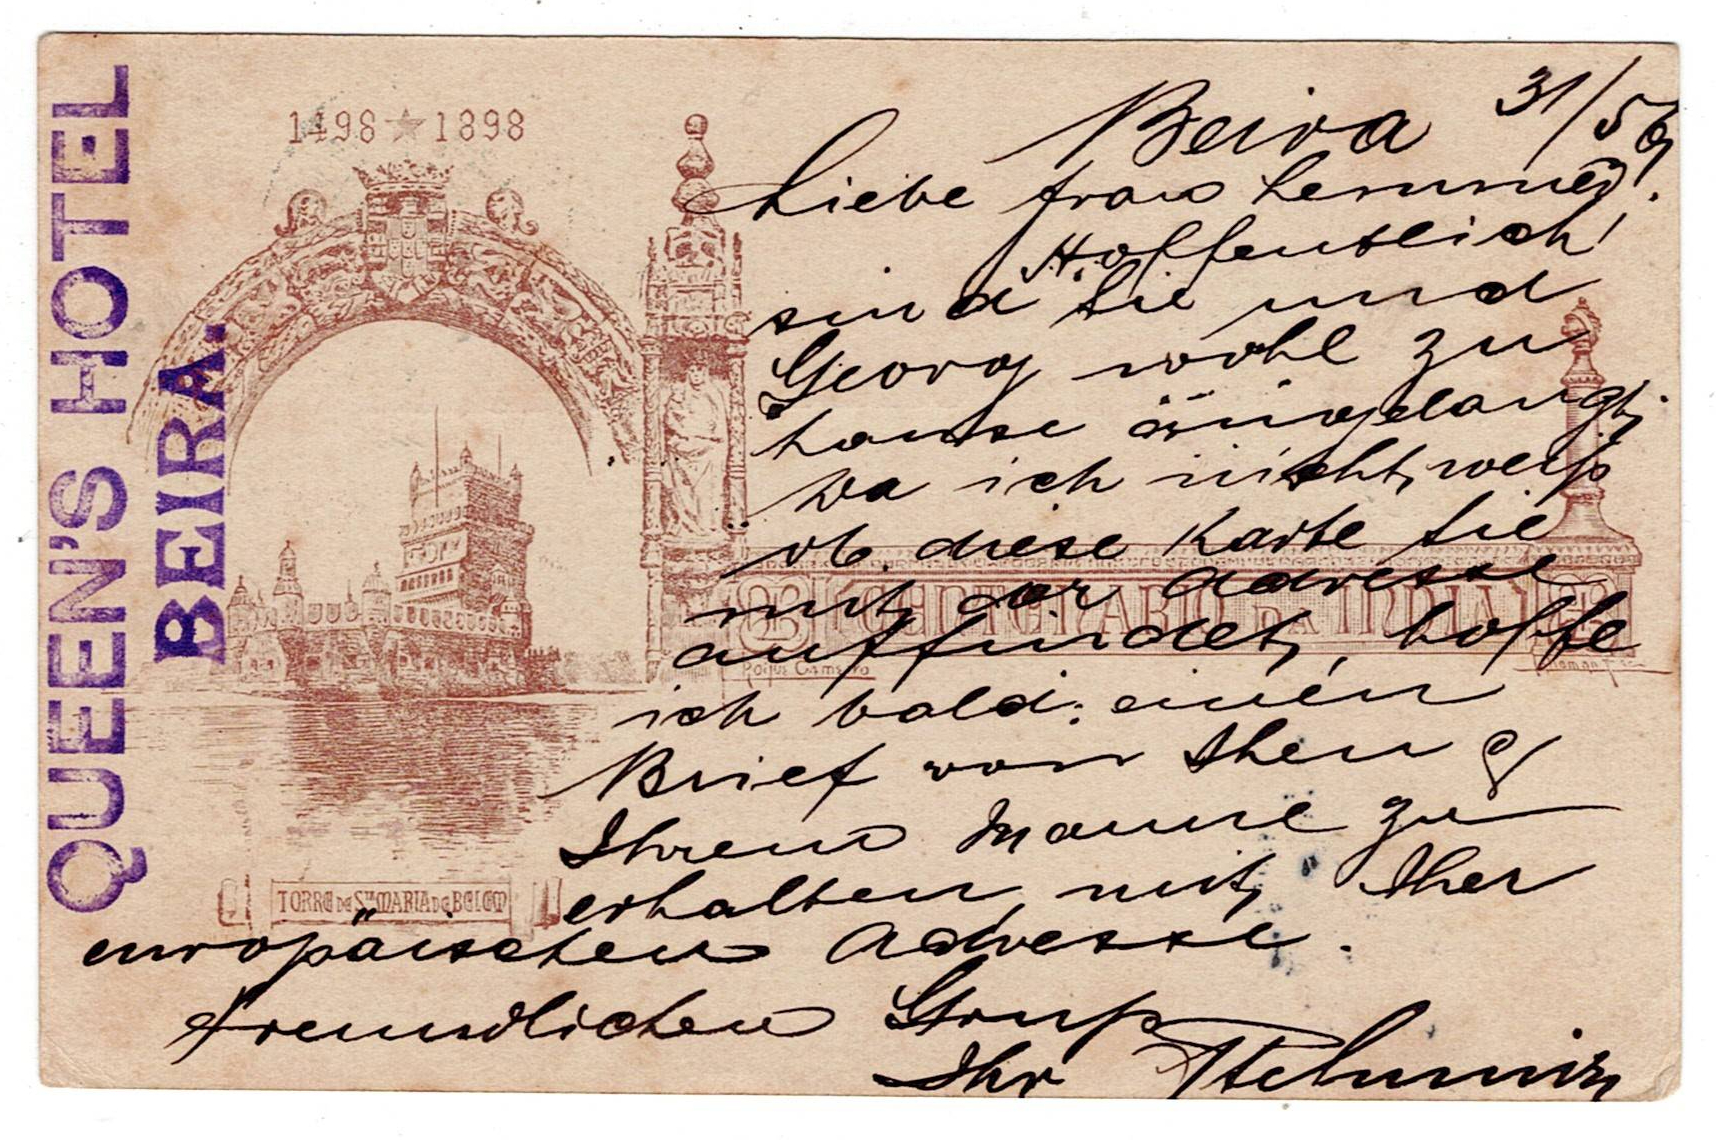 QUEEN'S HOTEL
BEIRA.
1498 ★ 1898
Beira 31/5
Liebe Frau
Hoffentlich
sind Sie und
Georg wohl zu
hause angelangt,
Da ich nicht weiß
ob diese Karte Sie
mit der Adresse
auffindet, hoffe
ich bald einen
Brief von Ihen &
Ihrem Manne zu
erhalten, mit Iher
europäischen Adresse.
Freundlichen Gruß
Ihr
CENTENARIO DA INDIA
Roque Gameiro
TORRE DE STA MARIA DE BELEM